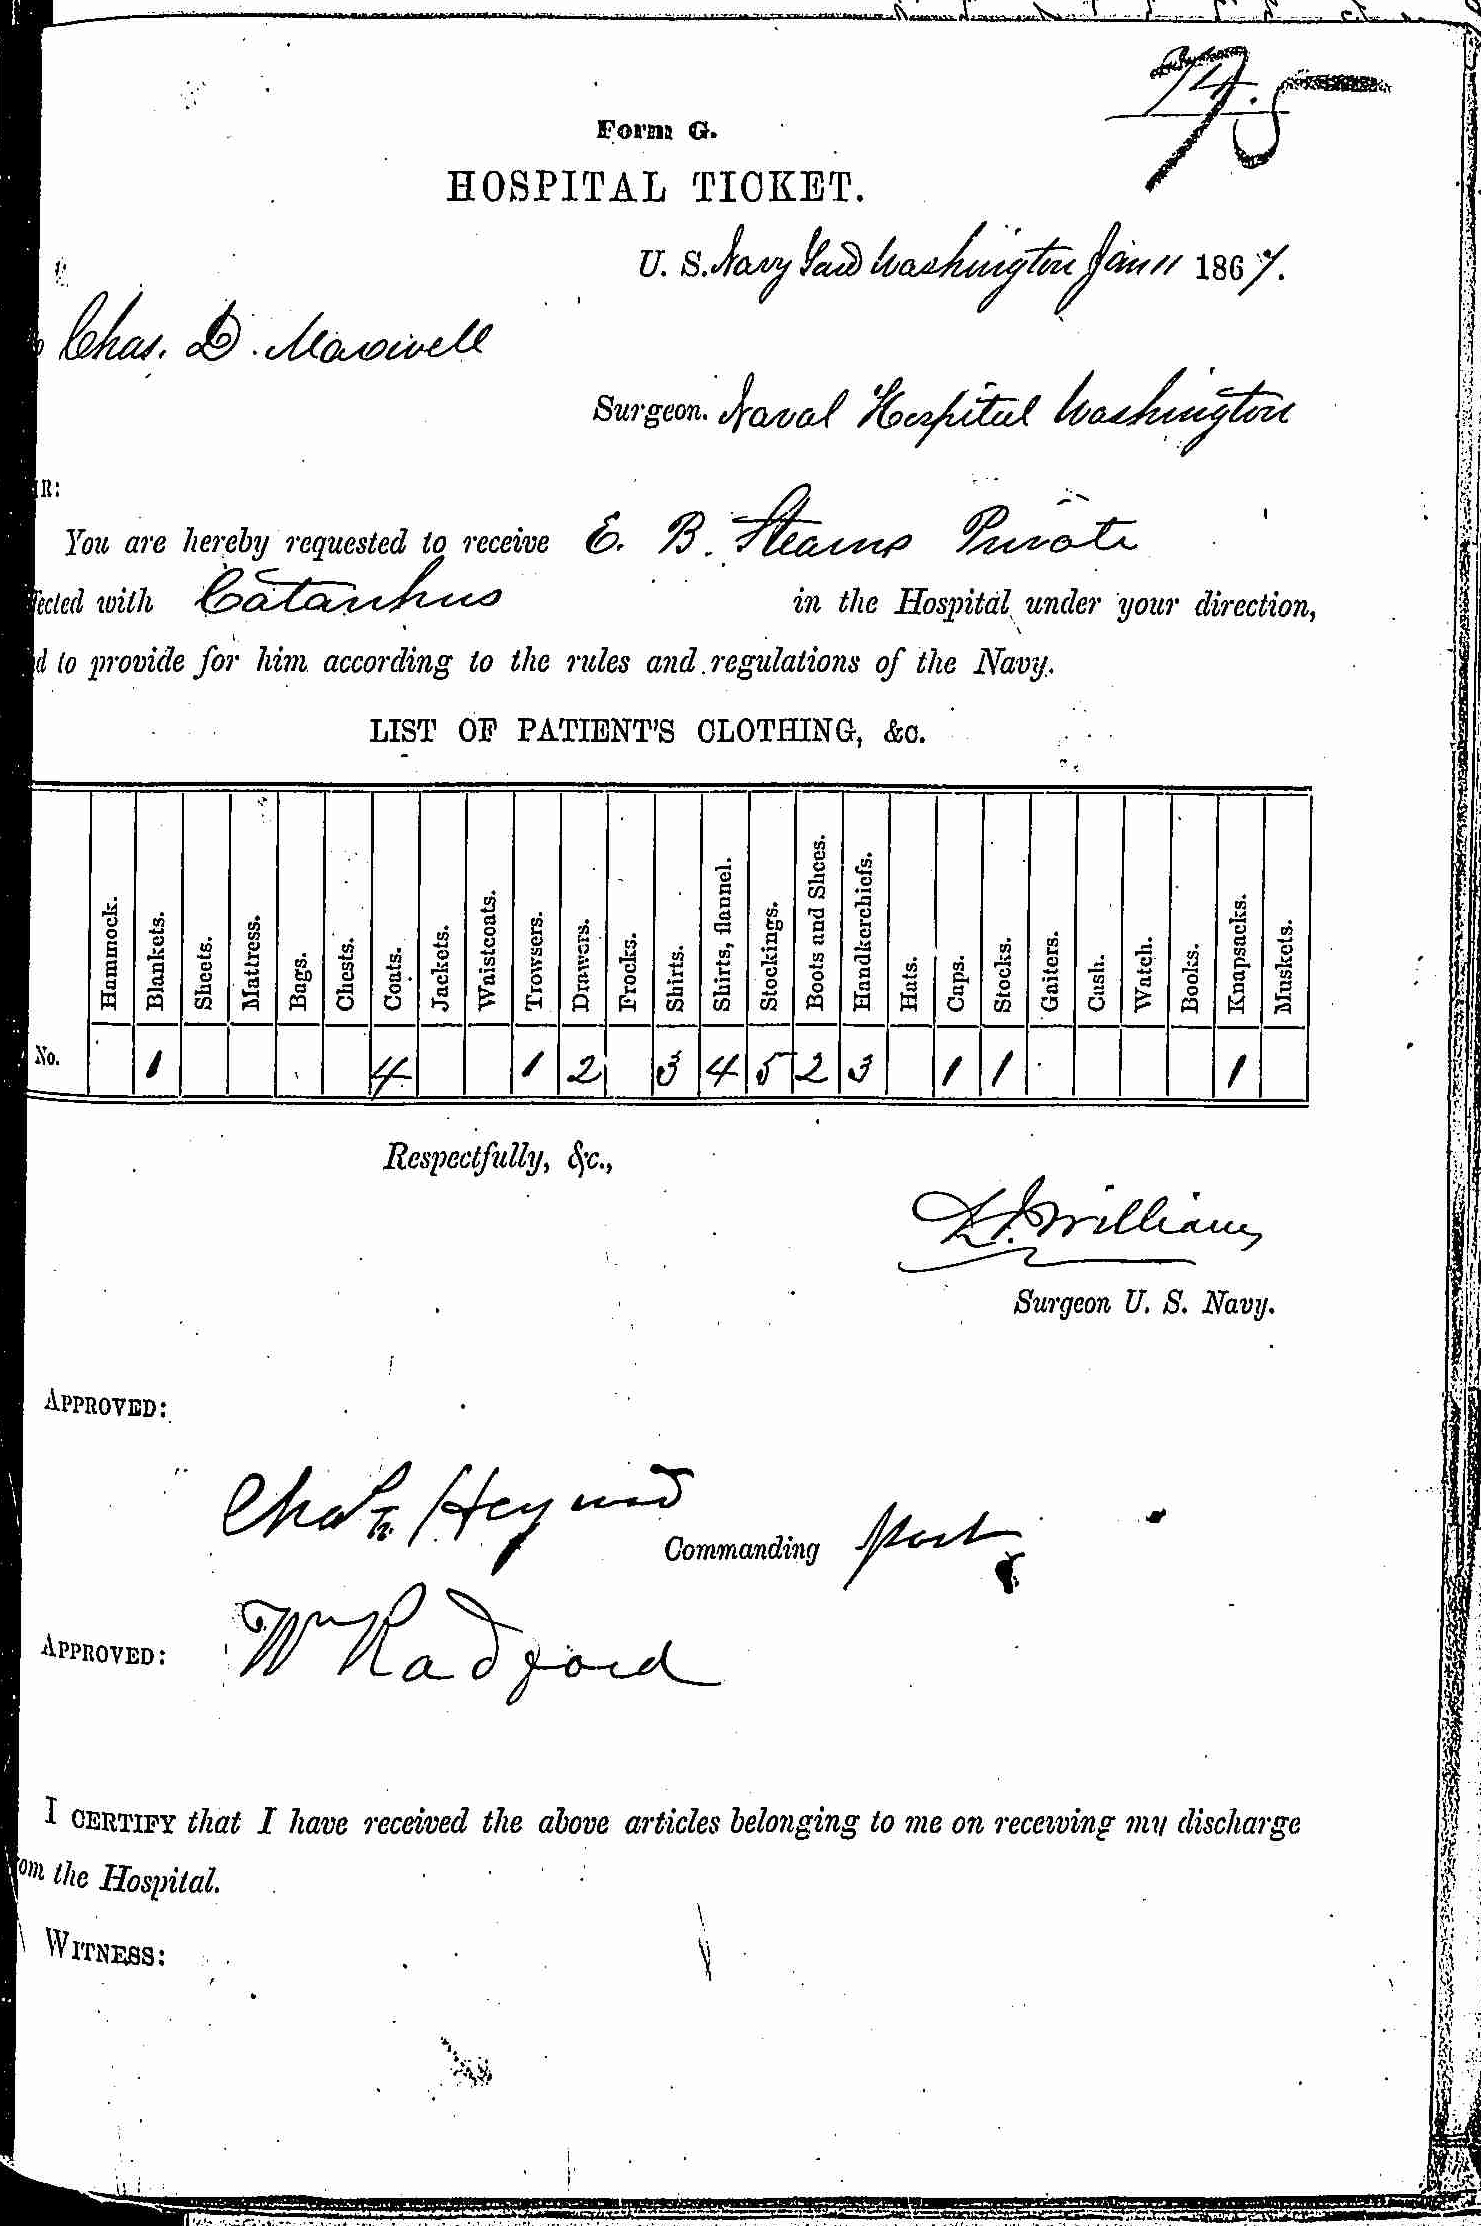 74.
75
Form G.
HOSPITAL TICKET.
U. S. Navy Yard Washington Jan 11 1867.
Chas. D. Maxwell
Surgeon. Naval Hospital Washington
IR:
You are hereby requested to receive E. B. Stearns Private
fected with Catarrhus in the Hospital under your direction,
d to provide for him according to the rules and regulations of the Navy.
LIST OF PATIENT'S CLOTHING, &c.
Hammock. Blankets. Sheets. Mattress. Bags. Chests. Coats. Jackets. Waistcoats. Trowsers. Drawers. Frocks. Shirts. Shirts, flannel. Stockings. Boots and Shoes. Handkerchiefs. Hats. Caps. Stocks. Gaiters. Cash. Watch. Books. Knapsacks. Muskets.
No. 1 4 1 2 3 4 5 2 3 1 1 1
Respectfully, &c.,
Williams
Surgeon U. S. Navy.
APPROVED:
Chas Heywood
Commanding Post
APPROVED: Wm Radford
I CERTIFY that I have received the above articles belonging to me on receiving my discharge
om the Hospital.
WITNESS: